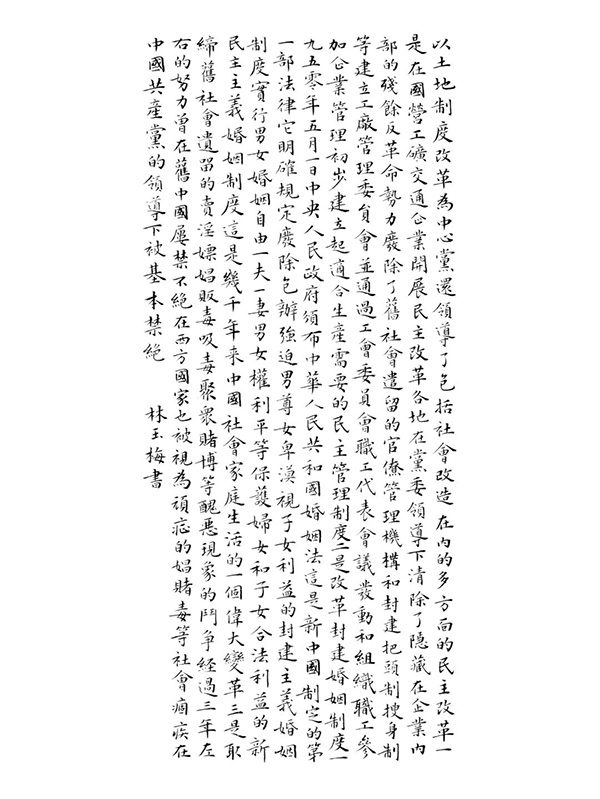 以土地制度改革為中心黨還領導了包括社會改造在內的多方面的民主改革一
是在國營工礦交通企業開展民主改革各地在黨委領導下清除了隱藏在企業內
部的殘餘反革命勢力廢除了舊社會遺留的官僚管理機構和封建把頭制搜身制
等建立工廠管理委員會並通過工會委員會職工代表會議發動和組織職工參
加企業管理初步建立起適合生產需要的民主管理制度二是改革封建婚姻制度一
九五零年五月一日中央人民政府頒布中華人民共和國婚姻法這是新中國制定的第
一部法律它明確規定廢除包辦強迫男尊女卑漠視子女利益的封建主義婚姻
制度實行男女婚姻自由一夫一妻男女權利平等保護婦女和子女合法利益的新
民主主義婚姻制度這是幾千年來中國社會家庭生活的一個偉大變革三是取
締舊社會遺留的賣淫嫖娼販毒吸毒聚眾賭博等醜惡現象的鬥爭經過三年左
右的努力曾在舊中國屢禁不絕在西方國家也被視為頑症的娼賭毒等社會痼疾在
中國共產黨的領導下被基本禁絕 林玉梅書